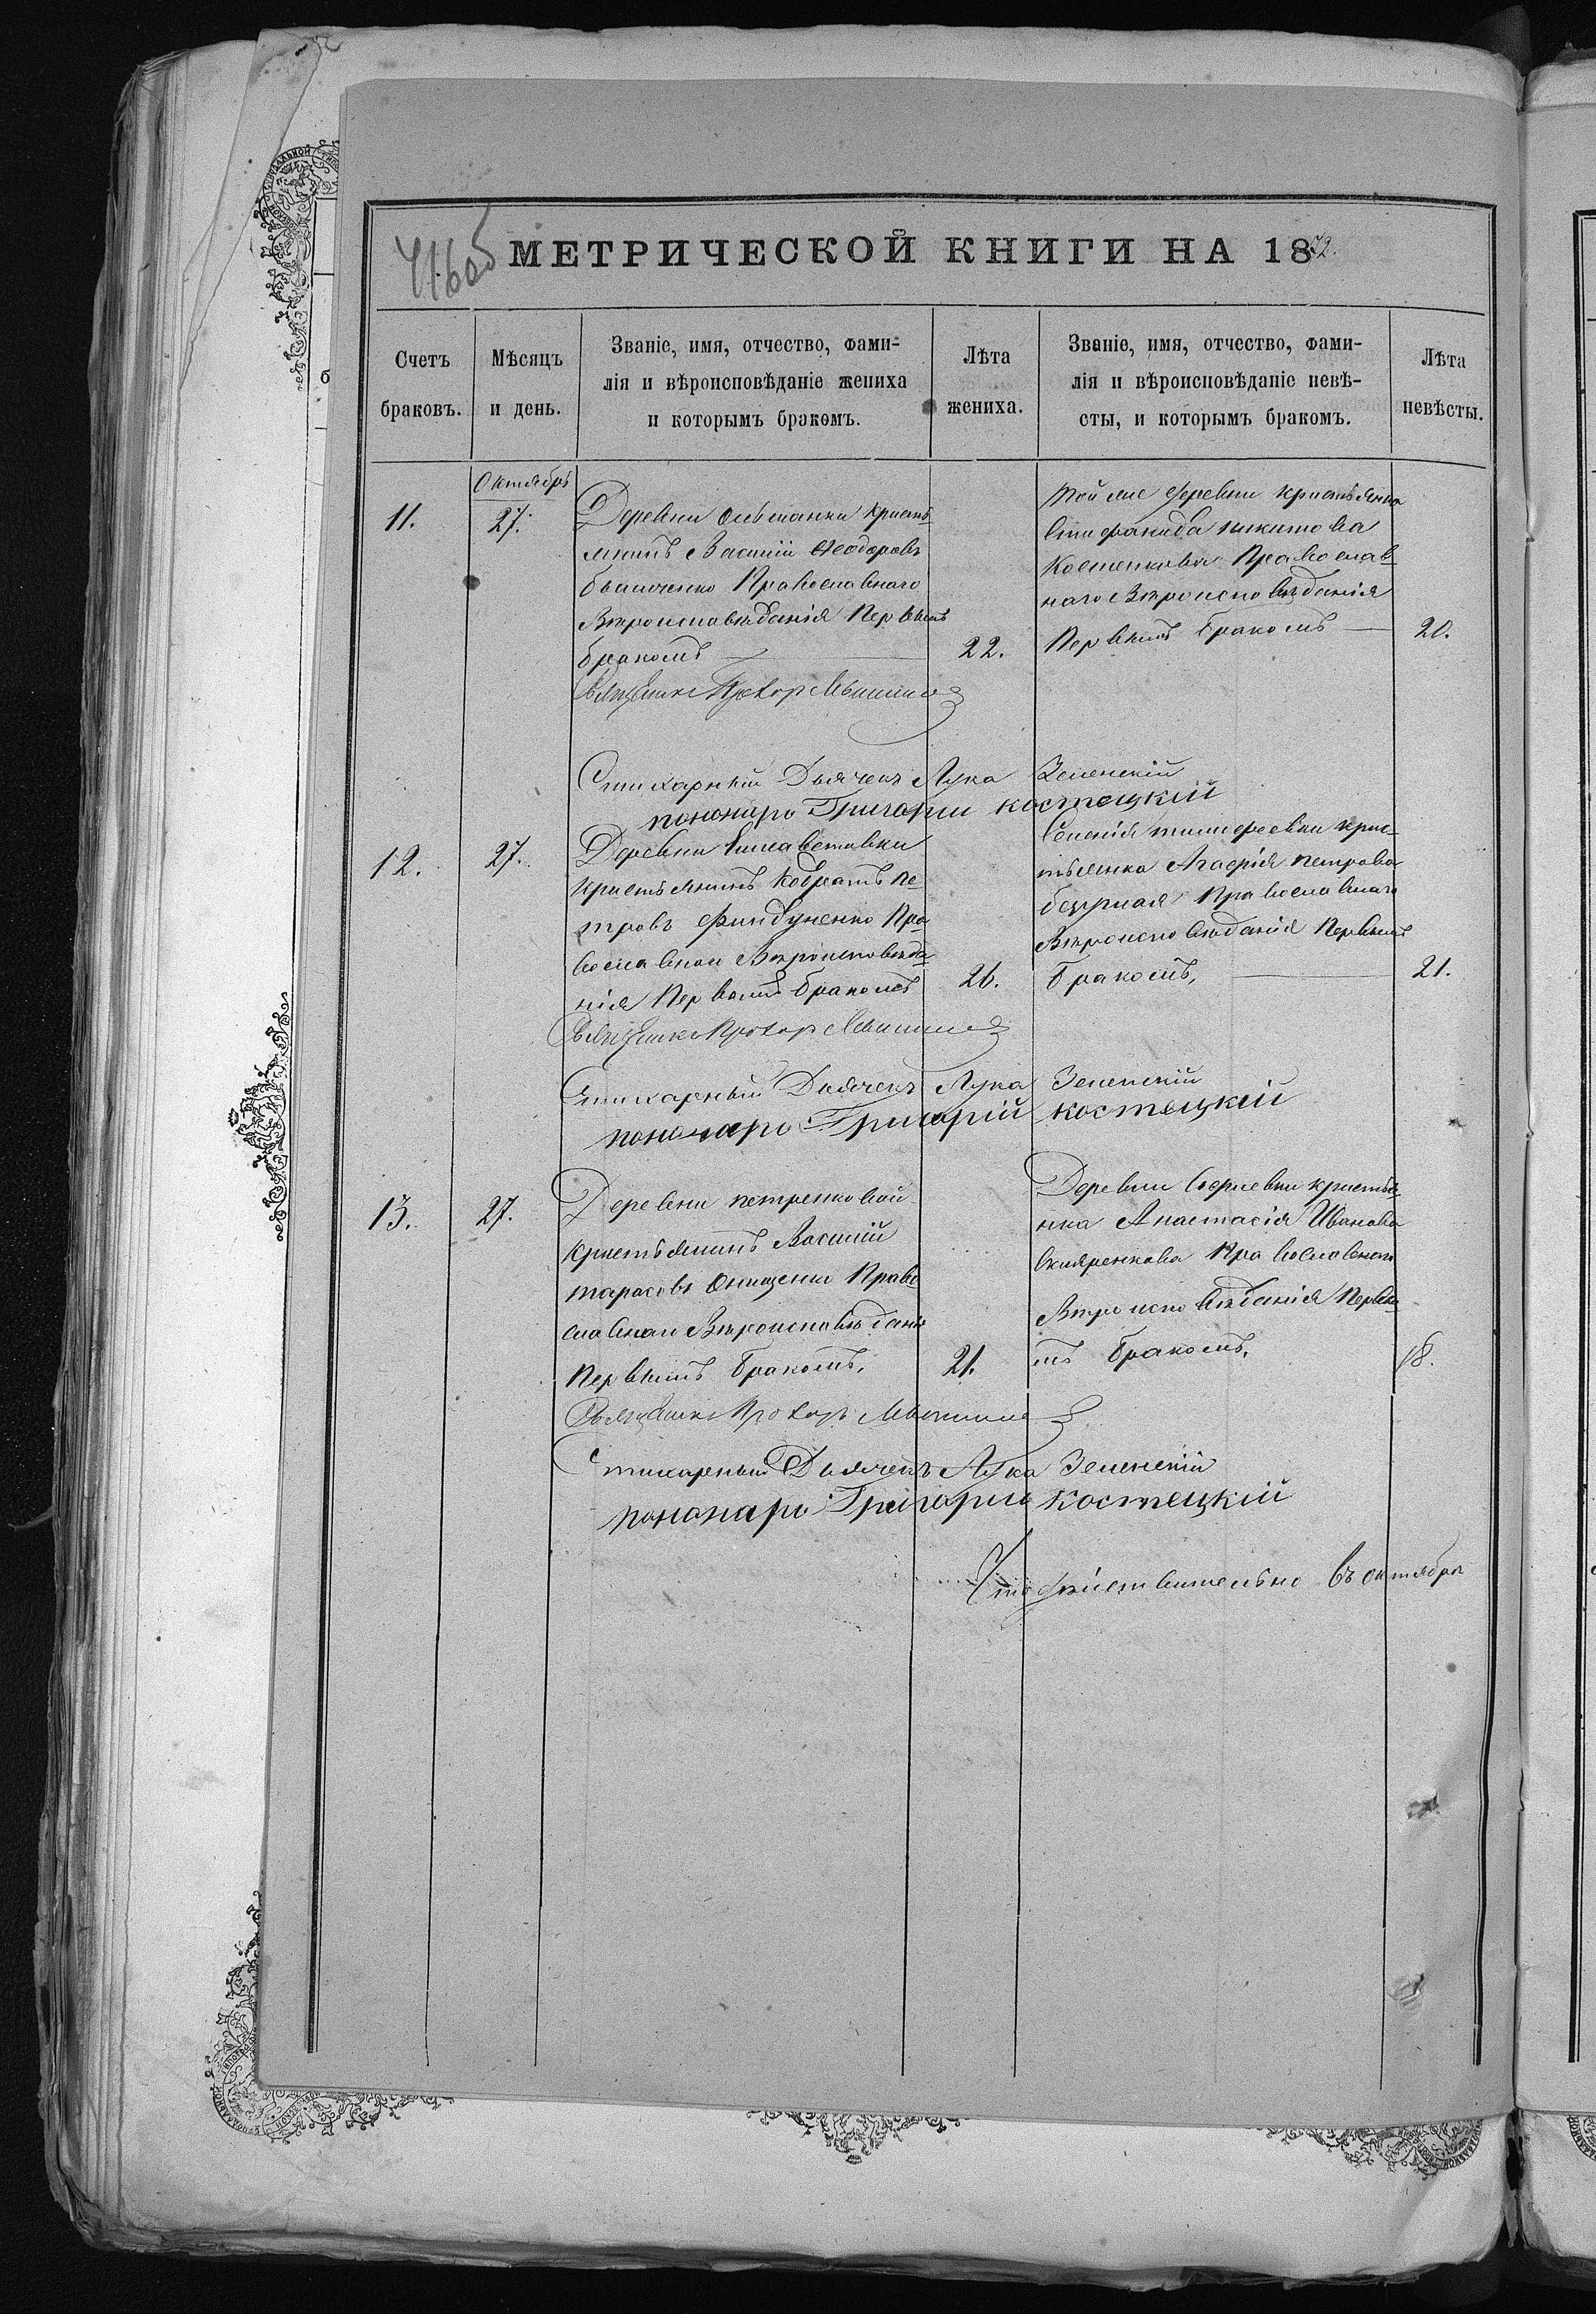 716об
МЕТРИЧЕСКОЙ КНИГИ НА 1872.
Счетъ
браковъ.
Мѣсяцъ
и день.
Званіе, имя, отчество, фами-
лія и вѣроисповѣданіе жениха
и которымъ бракомъ.
Лѣта
жениха.
Званіе, имя, отчество, фами-
лія и вѣроисповѣданіе невѣ-
сты, и которымъ бракомъ.
Лѣта
невѣсты.
Октябрь
11.
27.
Деревни Ольшанки кресть
янинъ Василій Ѳеодоровъ
Православнаго
Вѣроисповѣданія Первымъ
бракомъ
22.
Той же деревни крестьянка
Епифанида Никитова
Костенкова Православ
наго Вѣроисповѣданія
Первымъ бракомъ
20.
Священникъ Прохоръ
Стихарный Дьячекъ Лука Зеленскій
пономарь Григорій Костецкій
12.
27.
Деревни Елисаветовки
крестьянинъ Кодратъ Пе
тровъ Финдуненко Пра
вославнаго Вѣроисповѣда
нія Первымъ бракомъ
26.
крес-
тьянка Агафія Петрова
Православнаго
Вѣроисповѣданія Первымъ
бракомъ,
21.
Священникъ Прохоръ
Стихарный Дьячекъ Лука Зеленскій
пономарь Григорій Костецкій
13.
27.
Деревни Петренковой
крестьянинъ Василій
Тарасовъ Онищенко Право
славнаго Вѣроисповѣданія
Первымъ бракомъ,
21.
Деревни крестья
нка Анастасія Иванова
Скляренкова Православнаго
Вѣроисповѣданія Первы
мъ бракомъ,
18.
Священникъ Прохоръ
Стихарный Дьячекъ Лука Зеленскій
пономарь Григорій Костецкій
Что дѣйствительно въ октябрѣ